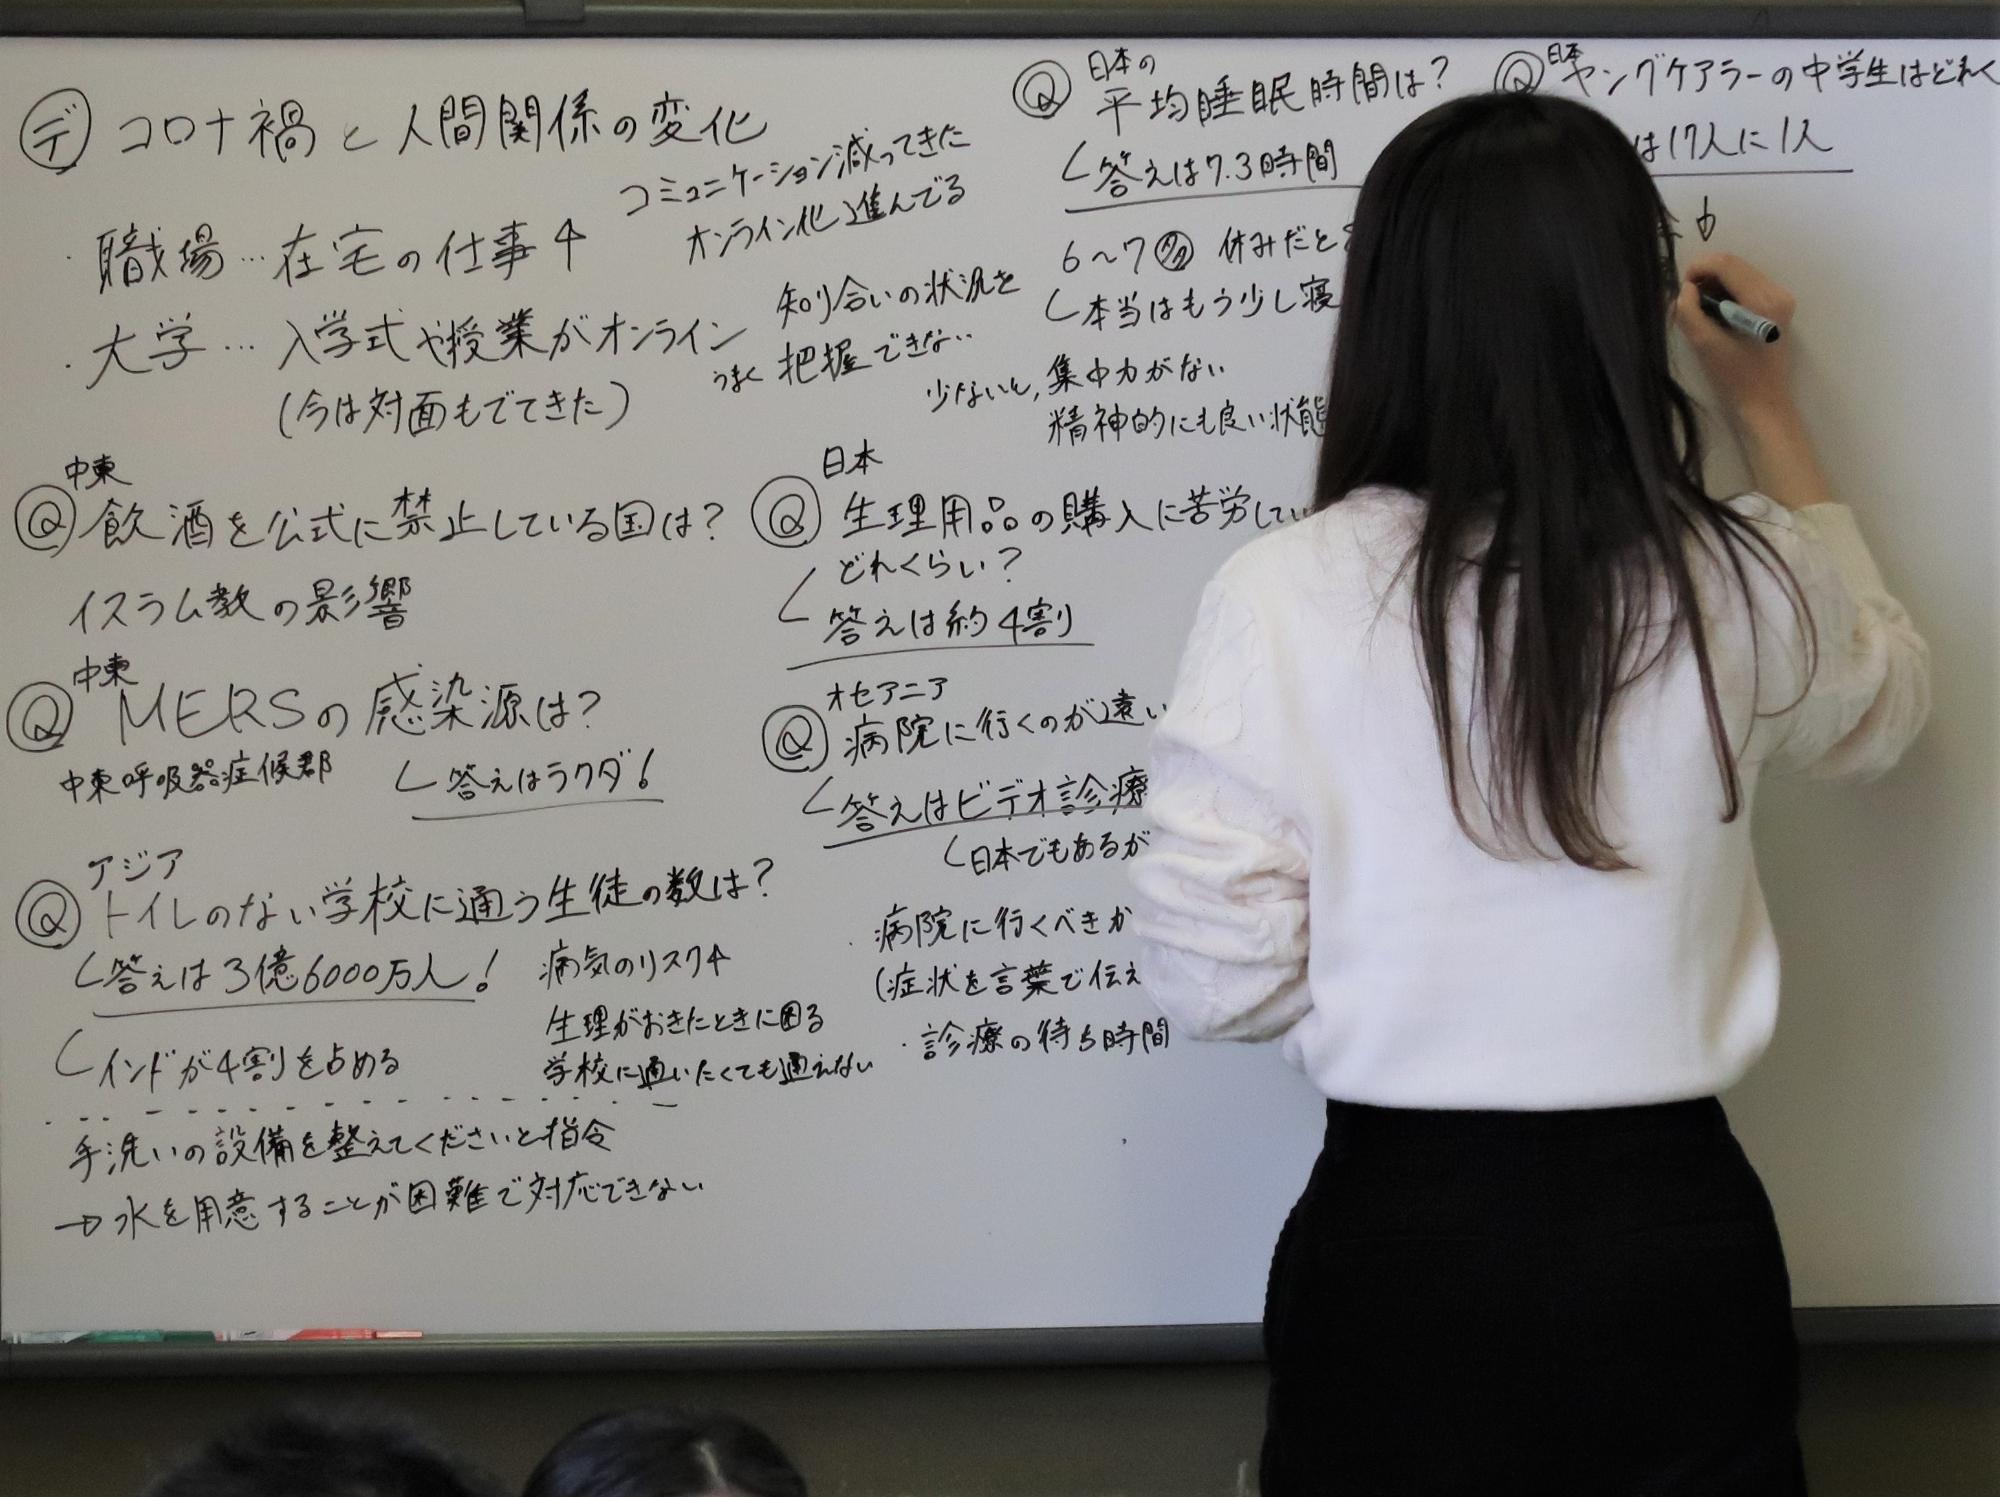 デ コロナ禍と人間関係の変化
・職場…在宅の仕事↑
・大学…入学式や授業がオンライン
(今は対面もでてきた)
コミュニケーション減ってきた
オンライン化進んでる
知り合いの状況を
うまく把握できない…
Q 中東
飲酒を公式に禁止している国は?
イスラム教の影響
Q 中東
MERSの感染源は?
中東呼吸器症候群
答えはラクダ!
Q アジア
トイレのない学校に通う生徒の数は?
答えは3億6000万人!
インドが4割を占める
病気のリスク↑
生理がおきたときに困る
学校に通いたくても通えない
手洗いの設備を整えてくださいと指令
→水を用意することが困難で対応できない
Q 日本
生理用品の購入に苦労してい
どれくらい?
答えは約4割
Q オセアニア
病院に行くのが遠い
答えはビデオ診療
日本でもあるが
・病院に行くべきか
(症状を言葉で伝え
・診療の待ち時間
Q 日本の
平均睡眠時間は?
答えは7.3時間
6〜7 休みだと
本当はもう少し寝
少ないと、集中力がない
精神的にも良い状態
Q 日本
ヤングケアラーの中学生はどれく
は17人に1人